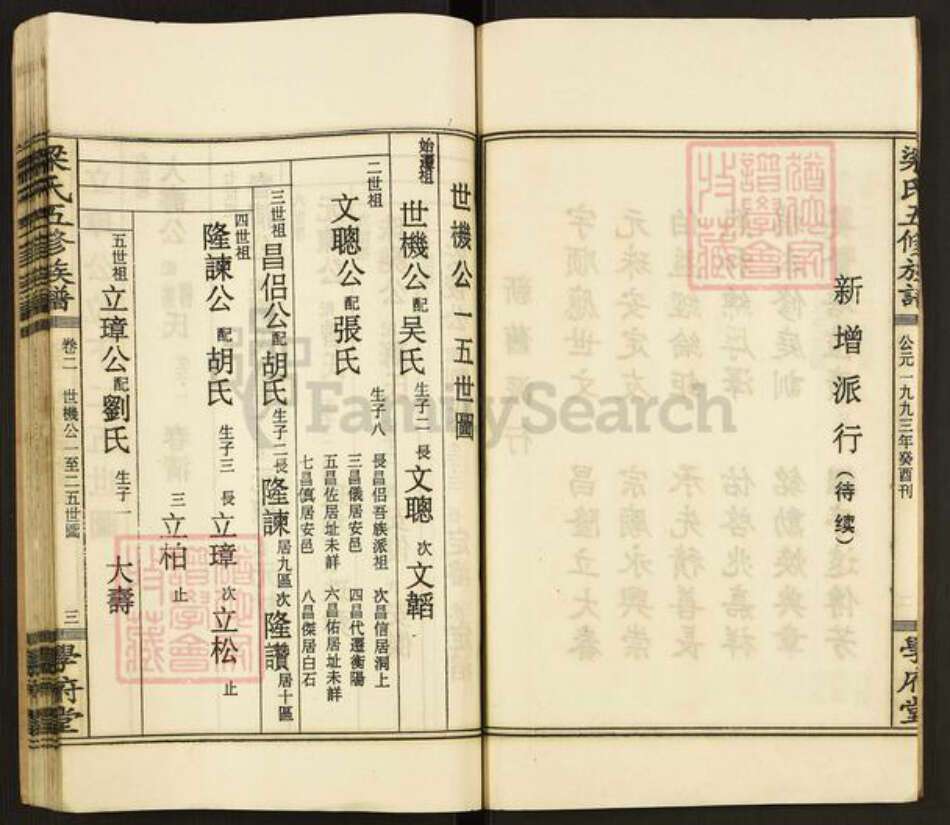 梁氏五修族譜
公元一九九三年癸酉刊
學府堂
新增派行(待续)
世機公一五世圖
始遷祖
世機公配吴氏 生子二 長文聰 次文韜
二世祖
文聰公配張氏 生子八
長昌侣吾族派祖 次昌信居洞上
三昌儀居安邑 四昌代遷衡陽
五昌佐居址未詳 六昌佑居址未詳
七昌慎居安邑 八昌傑居白石
三世祖
昌侣公配胡氏生子二長隆諫居九區次隆讚居十區
四世祖
隆諫公配胡氏 生子三 長立璋 次立松止
三立柏止
五世祖
立璋公配劉氏 生子一 大壽
梁氏五修族譜
卷二 世機公一至二五世圖 三
學府堂
FamilySearch